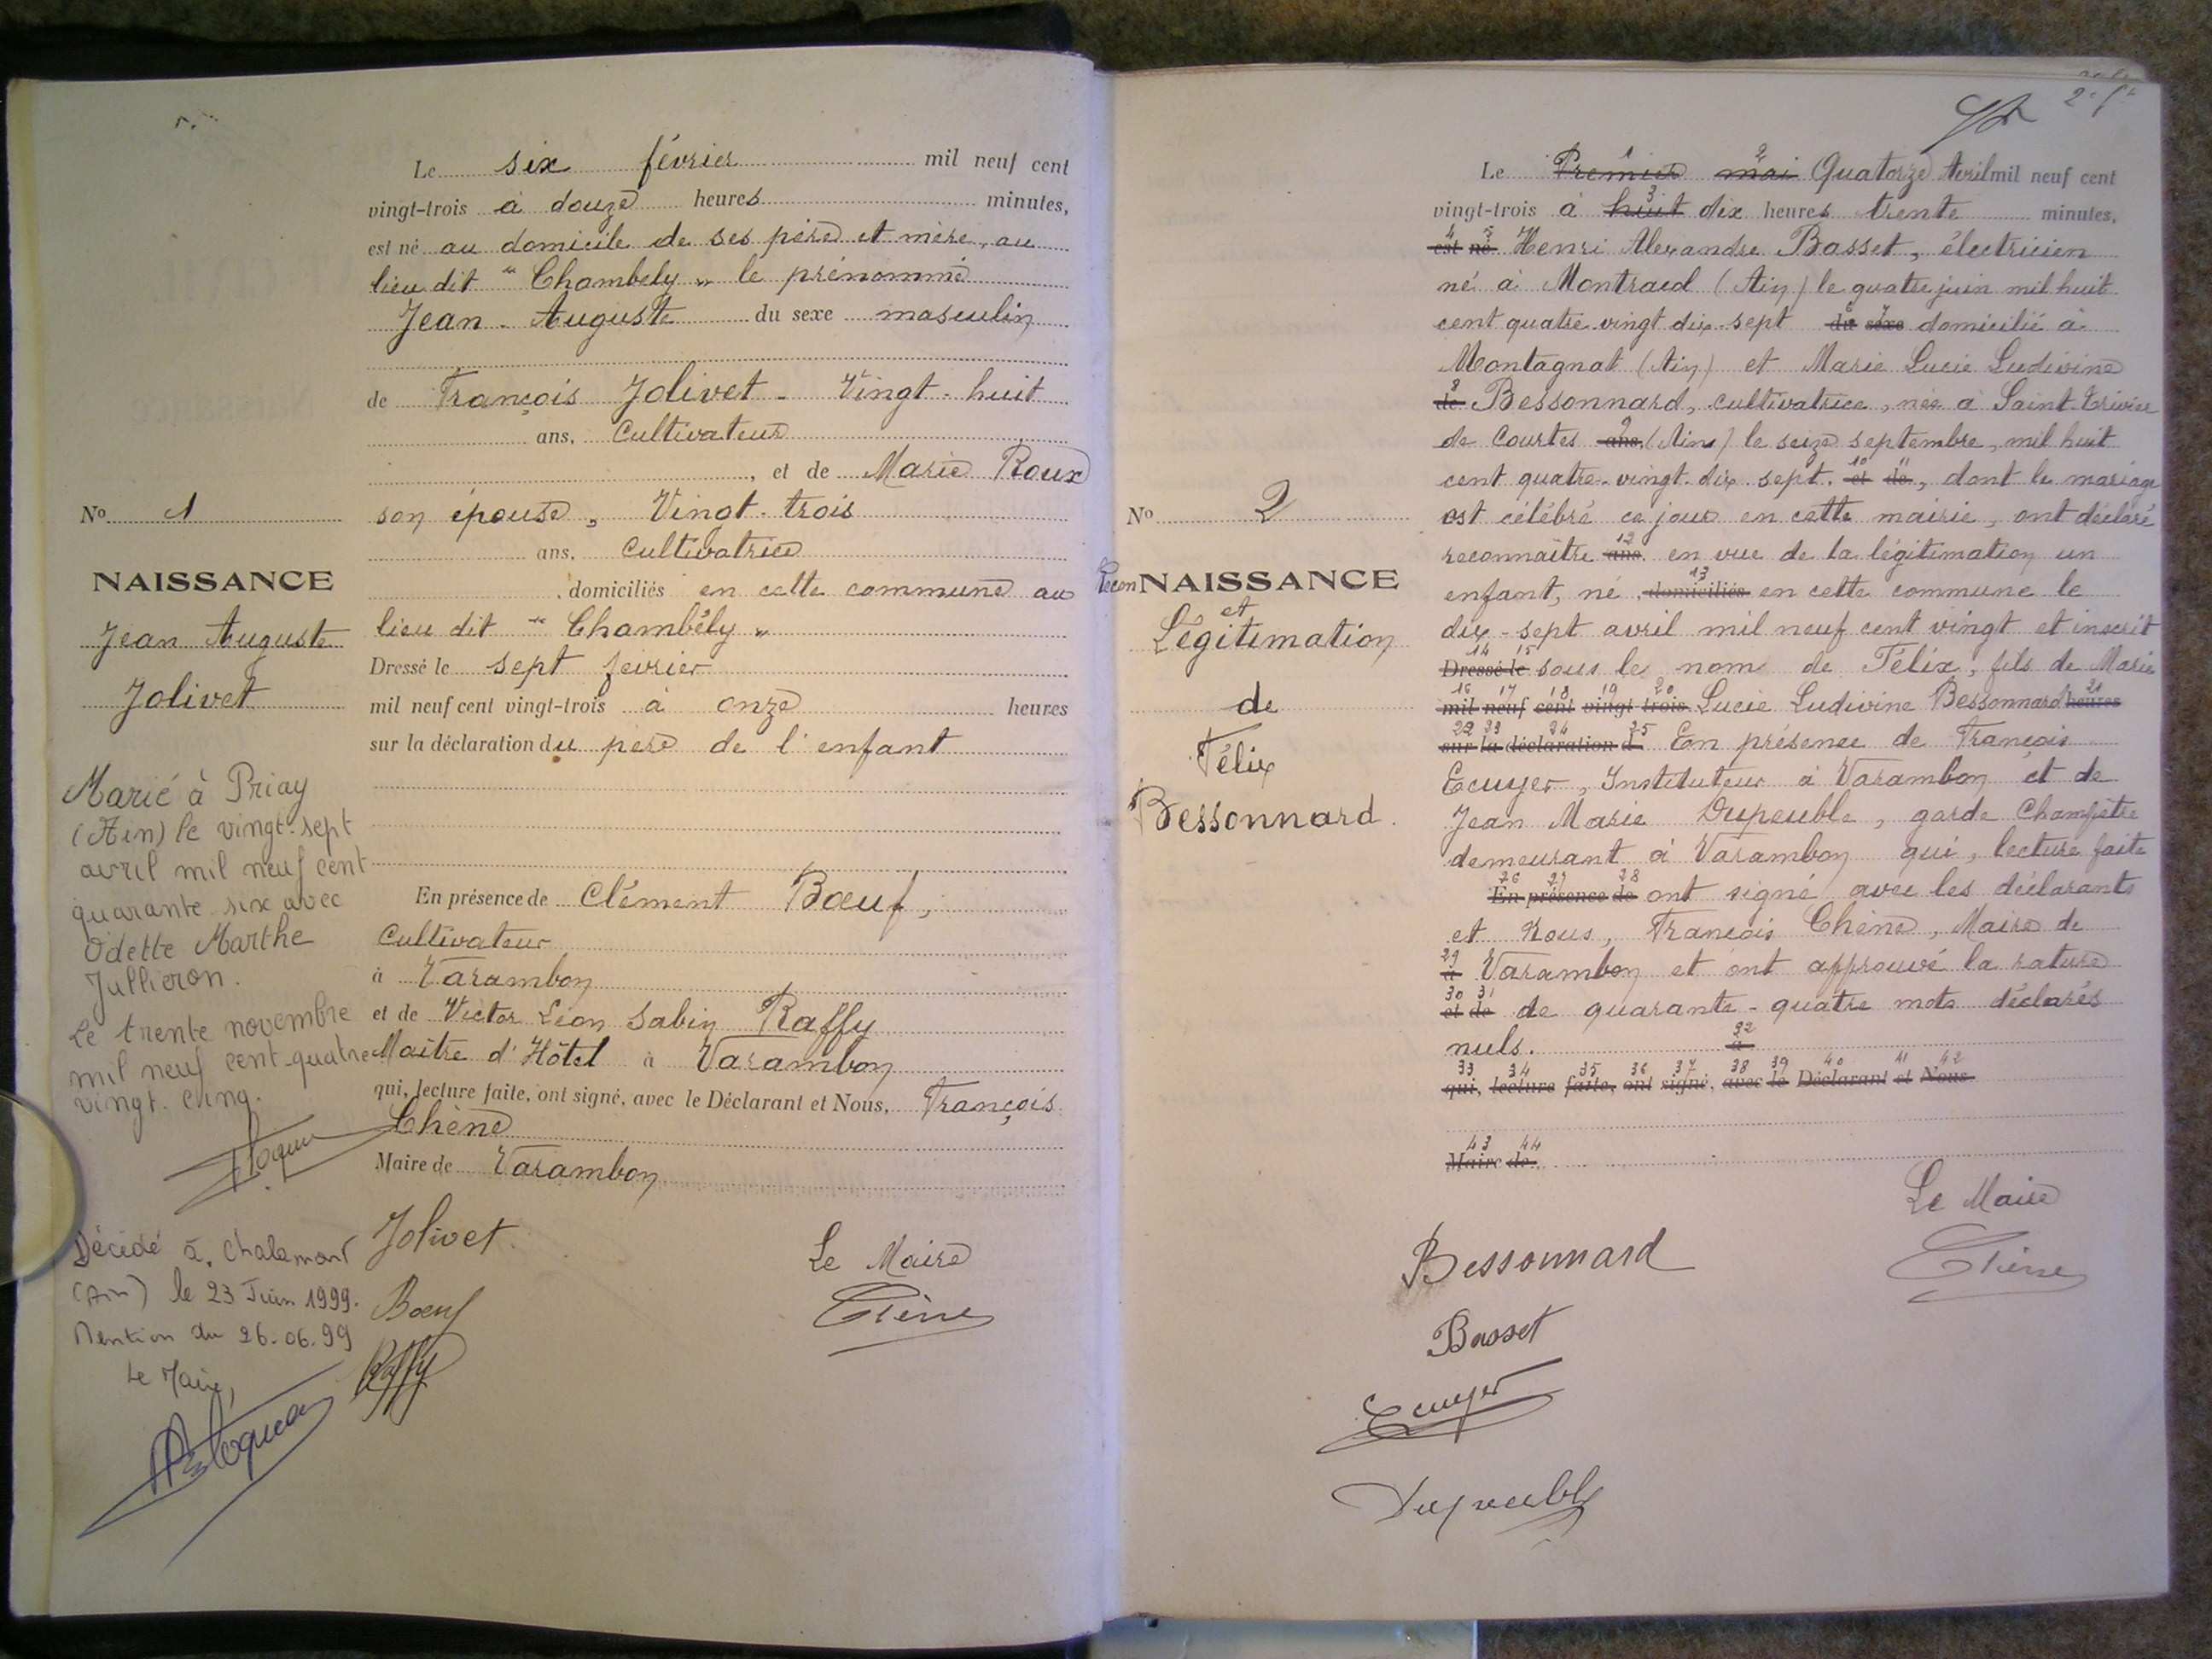 Le six février mil neuf cent
vingt-trois à douze heures minutes,
est né au domicile de ses père et mère, au
lieu dit "Chambely" le prénommé
Jean-Auguste du sexe masculin
de François Jolivet - Vingt-huit
ans, Cultivateur
, et de Marie Roux
son épouse, Vingt-trois
ans, Cultivatrice
, domiciliés en cette commune au
lieu dit "Chambély"
Dressé le sept février
mil neuf cent vingt-trois à onze heures
sur la déclaration du père de l'enfant
En présence de Clément Bœuf,
Cultivateur
à Varambon
et de Victor Léon Sabin Raffy
Maître d'Hôtel à Varambon
qui, lecture faite, ont signé, avec le Déclarant et Nous, François
Chêne
Maire de Varambon
Jolivet
Le Maire
Bœuf
Chêne
Raffy
No 1
NAISSANCE
Jean Auguste
Jolivet
Marié à Priay
(Ain) le vingt-sept
avril mil neuf cent
quarante six avec
Odette Marthe
Jullieron.
Le trente novembre
mil neuf cent-quatre
vingt-cinq.
Décédé à Chalamont
(Ain) le 23 Juin 1999.
Mention du 26.06.99
Le Maire,
No 2
Recon NAISSANCE
et
Légitimation
de
Félix
Bessonnard.
1 2
Le Premier mai Quatorze Avril mil neuf cent
3
vingt-trois à huit dix heures trente minutes,
4 5
est né Henri Alexandre Basset, électricien
né à Montracol (Ain) le quatre juin mil huit
6 7
cent quatre-vingt dix-sept du sexe domicilié à
Montagnat (Ain) et Marie Lucie Ludivine
8
de Bessonnard, cultivatrice, née à Saint-Trivier
9
de Courtes ans, (Ain) le seize septembre, mil huit
10 11
cent quatre-vingt-dix sept. et de, dont le mariage
est célébré ce jour en cette mairie, ont déclaré
12
reconnaître ans. en vue de la légitimation un
13
enfant, né, domiciliés en cette commune le
dix-sept avril mil neuf cent vingt et inscrit
14 15
Dressé le sous le nom de Félix, fils de Marie
16 17 18 19 20 21
mil neuf cent vingt-trois Lucie Ludivine Bessonnard heures
22 23 24 25
sur la déclaration d En présence de François
Ecuyer, Instituteur à Varambon et de
Jean Marie Dupeuble, garde Champêtre
demeurant à Varambon qui, lecture faite
26 27 28
En présence de ont signé avec les déclarants
et Nous, François Chêne, Maire de
29
à Varambon et ont approuvé la rature
30 31
et de de quarante-quatre mots déclarés
32
nuls. à
33 34 35 36 37 38 39 40 41 42
qui, lecture faite, ont signé, avec le Déclarant et Nous
43 44
Maire de
Le Maire
Bessonnard
Chêne
Basset
Ecuyer
Dupeuble